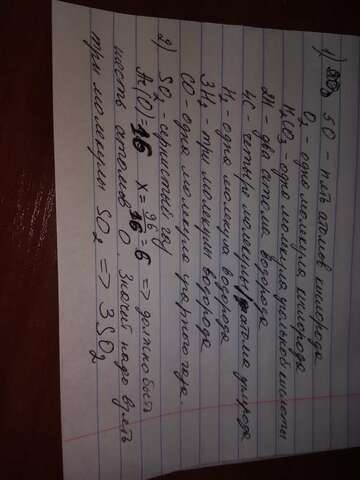 1) 5O - пять атомов кислорода
O₂ - одна молекула кислорода
H₂CO₃ - одна молекула угольной кислоты
2H - два атома водорода
4C - четыре атома углерода
H₂ - одна молекула водорода
3H₂ - три молекулы водорода
CO - одна молекула угарного газа.
2) SO₂ - сернистый газ
Ar(O)=16 x = 96/16 = 6 => должно быть
шесть атомов O. Значит надо взять
три молекулы SO₂ => 3SO₂